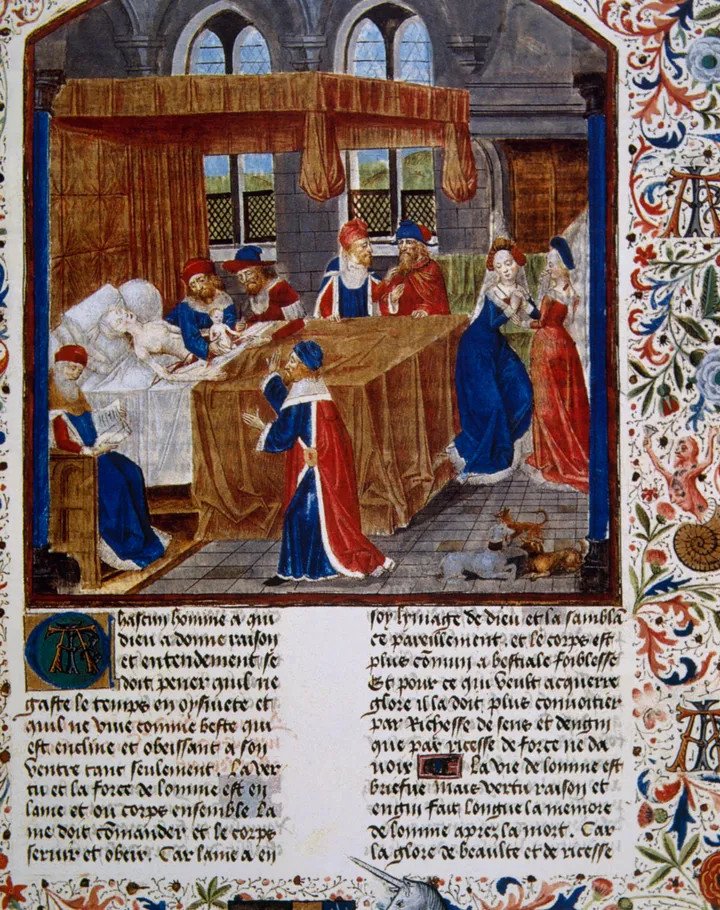 hascun homme a qui
dieu a donne raison
et entendement se
doit pener quil ne
gaste le temps en oysiuete et
quil ne viue comme beste qui
est encline et obeissant a son
ventre tant seulement. La ver
tu et la force de lomme est en
lame et ou corps ensemble La
me doit cōmander et le corps
seruir et obeir. Car lame a en
soy lymage de dieu et la sambla
ce pareillement. et le corps est
plus cōmun a bestiale foiblesse
Et pour ce qui veult acquerre
glore il la doit plus conuoitier
par Richesse de sens et dengin
que par ricesse de force ne da
uoir La vie de lomme est
briefue mais vertu raison et
engin fait longue la memore
de lomme aprez la mort. Car
la glore de beaulte et de ricesse